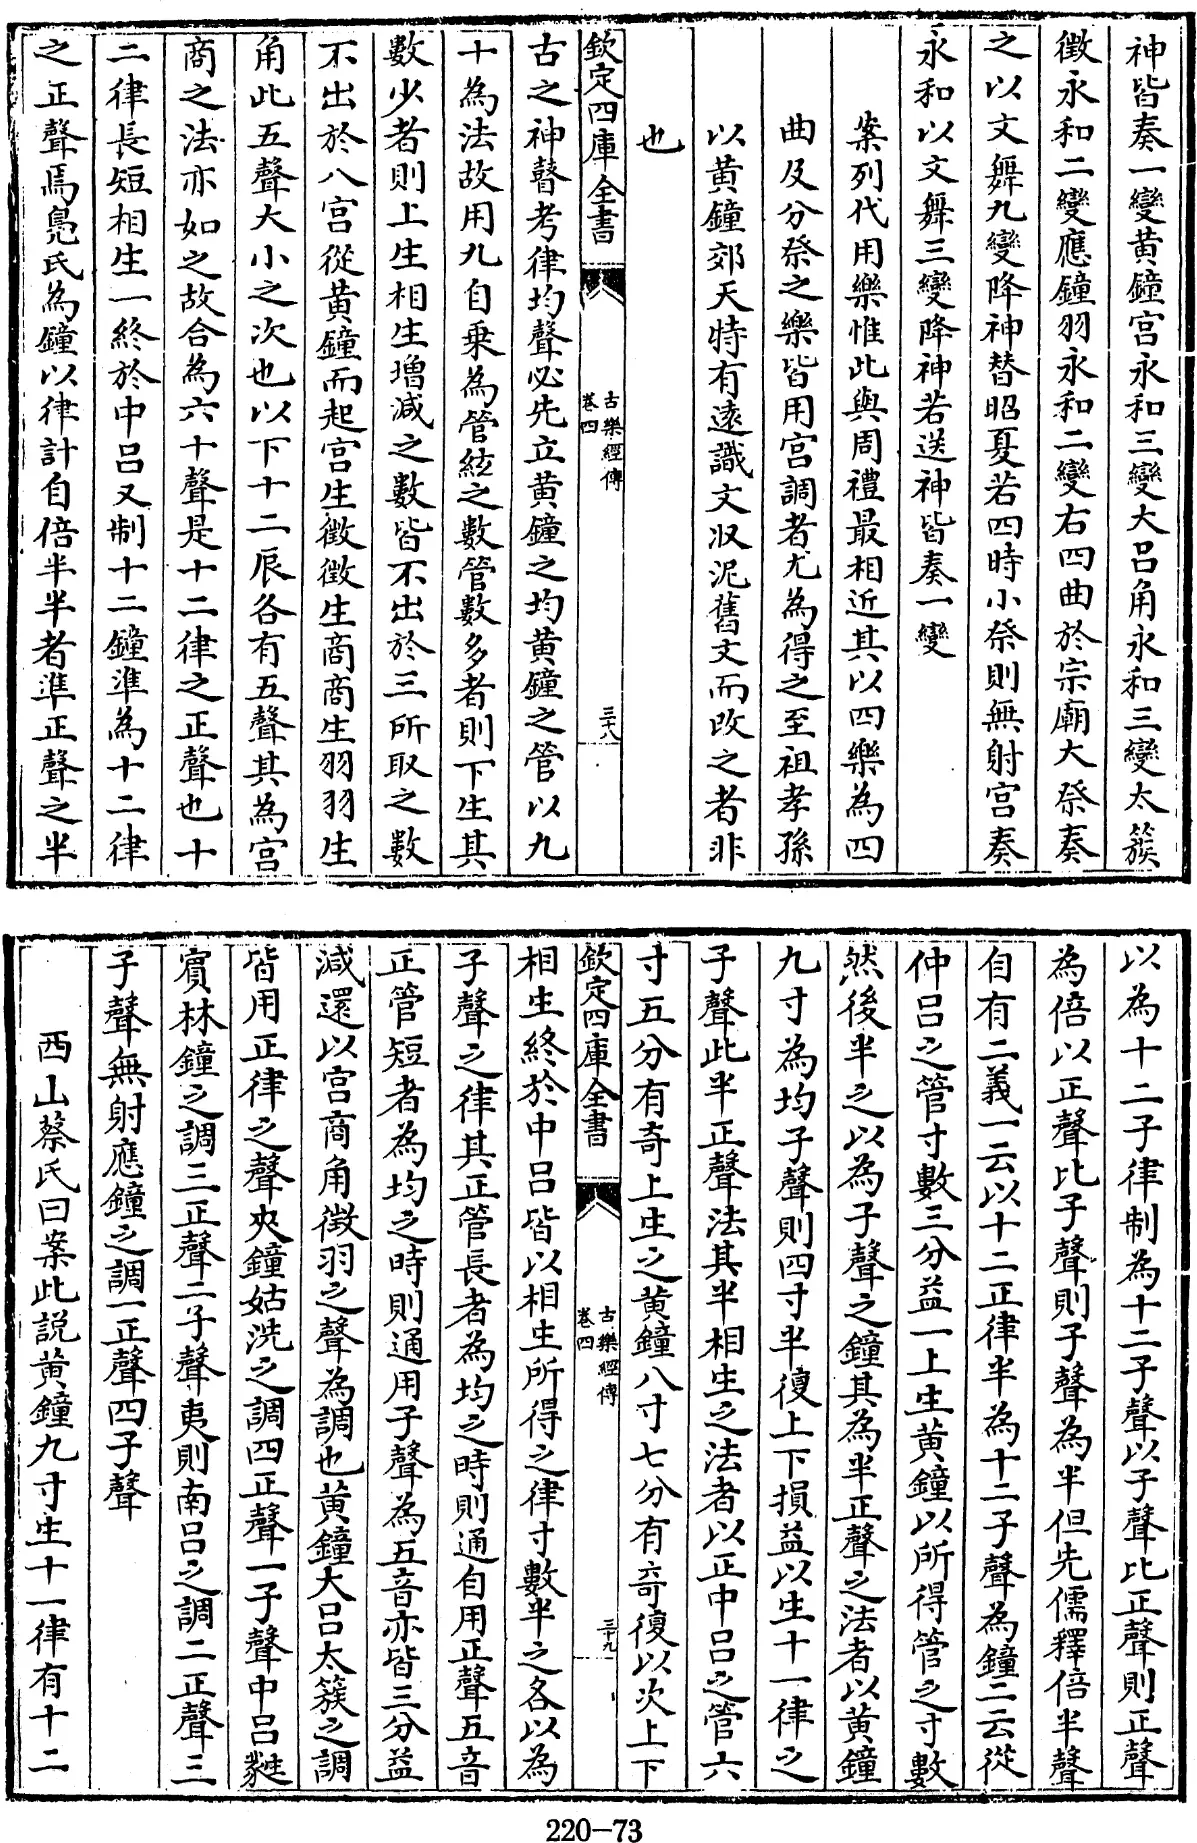 神皆奏一變黄鐘宫永和三變大吕角永和三變太簇
徴永和二變應鐘羽永和二變右四曲於宗廟大祭奏
之以文舞九變降神替昭夏若四時小祭則無射宫奏
永和以文舞三變降神若送神皆奏一變
案列代用樂惟此與周禮最相近其以四樂為四
曲及分祭之樂皆用宫調者尤為得之至祖孝孫
以黄鐘郊天特有遠識文収泥舊文而改之者非
也
欽定四庫全書
古樂經傳
卷四
三十八
古之神瞽考律均聲必先立黄鐘之均黄鐘之管以九
十為法故用九自乗為管絃之數管數多者則下生其
數少者則上生相生增減之數皆不出於三所取之數
不出於八宫從黄鐘而起宫生徴徴生商商生羽羽生
角此五聲大小之次也以下十二辰各有五聲其為宫
商之法亦如之故合為六十聲是十二律之正聲也十
二律長短相生一終於中吕又制十二鐘準為十二律
之正聲焉鳧氏為鐘以律計自倍半半者準正聲之半
以為十二子律制為十二子聲以子聲比正聲則正聲
為倍以正聲比子聲則子聲為半但先儒釋倍半聲
自有二義一云以十二正律半為十二子聲為鐘二云從
仲吕之管寸數三分益一上生黄鐘以所得管之寸數
然後半之以為子聲之鐘其為半正聲之法者以黄鐘
九寸為均子聲則四寸半復上下損益以生十一律之
子聲此半正聲法其半相生之法者以正中吕之管六
寸五分有奇上生之黄鐘八寸七分有奇復以次上下
欽定四庫全書
古樂經傳
卷四
三十九
相生終於中吕皆以相生所得之律寸數半之各以為
子聲之律其正管長者為均之時則通自用正聲五音
正管短者為均之時則通用子聲為五音亦皆三分益
減還以宫商角徴羽之聲為調也黄鐘大吕太簇之調
皆用正律之聲夾鐘姑洗之調四正聲一子聲中吕蕤
賓林鐘之調三正聲二子聲夷則南吕之調二正聲三
子聲無射應鐘之調一正聲四子聲
西山蔡氏曰案此説黄鐘九寸生十一律有十二
220-73